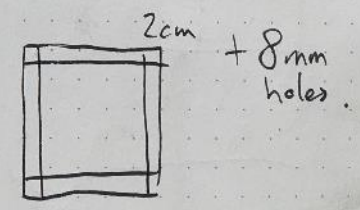 2cm
+ 8mm
holes.